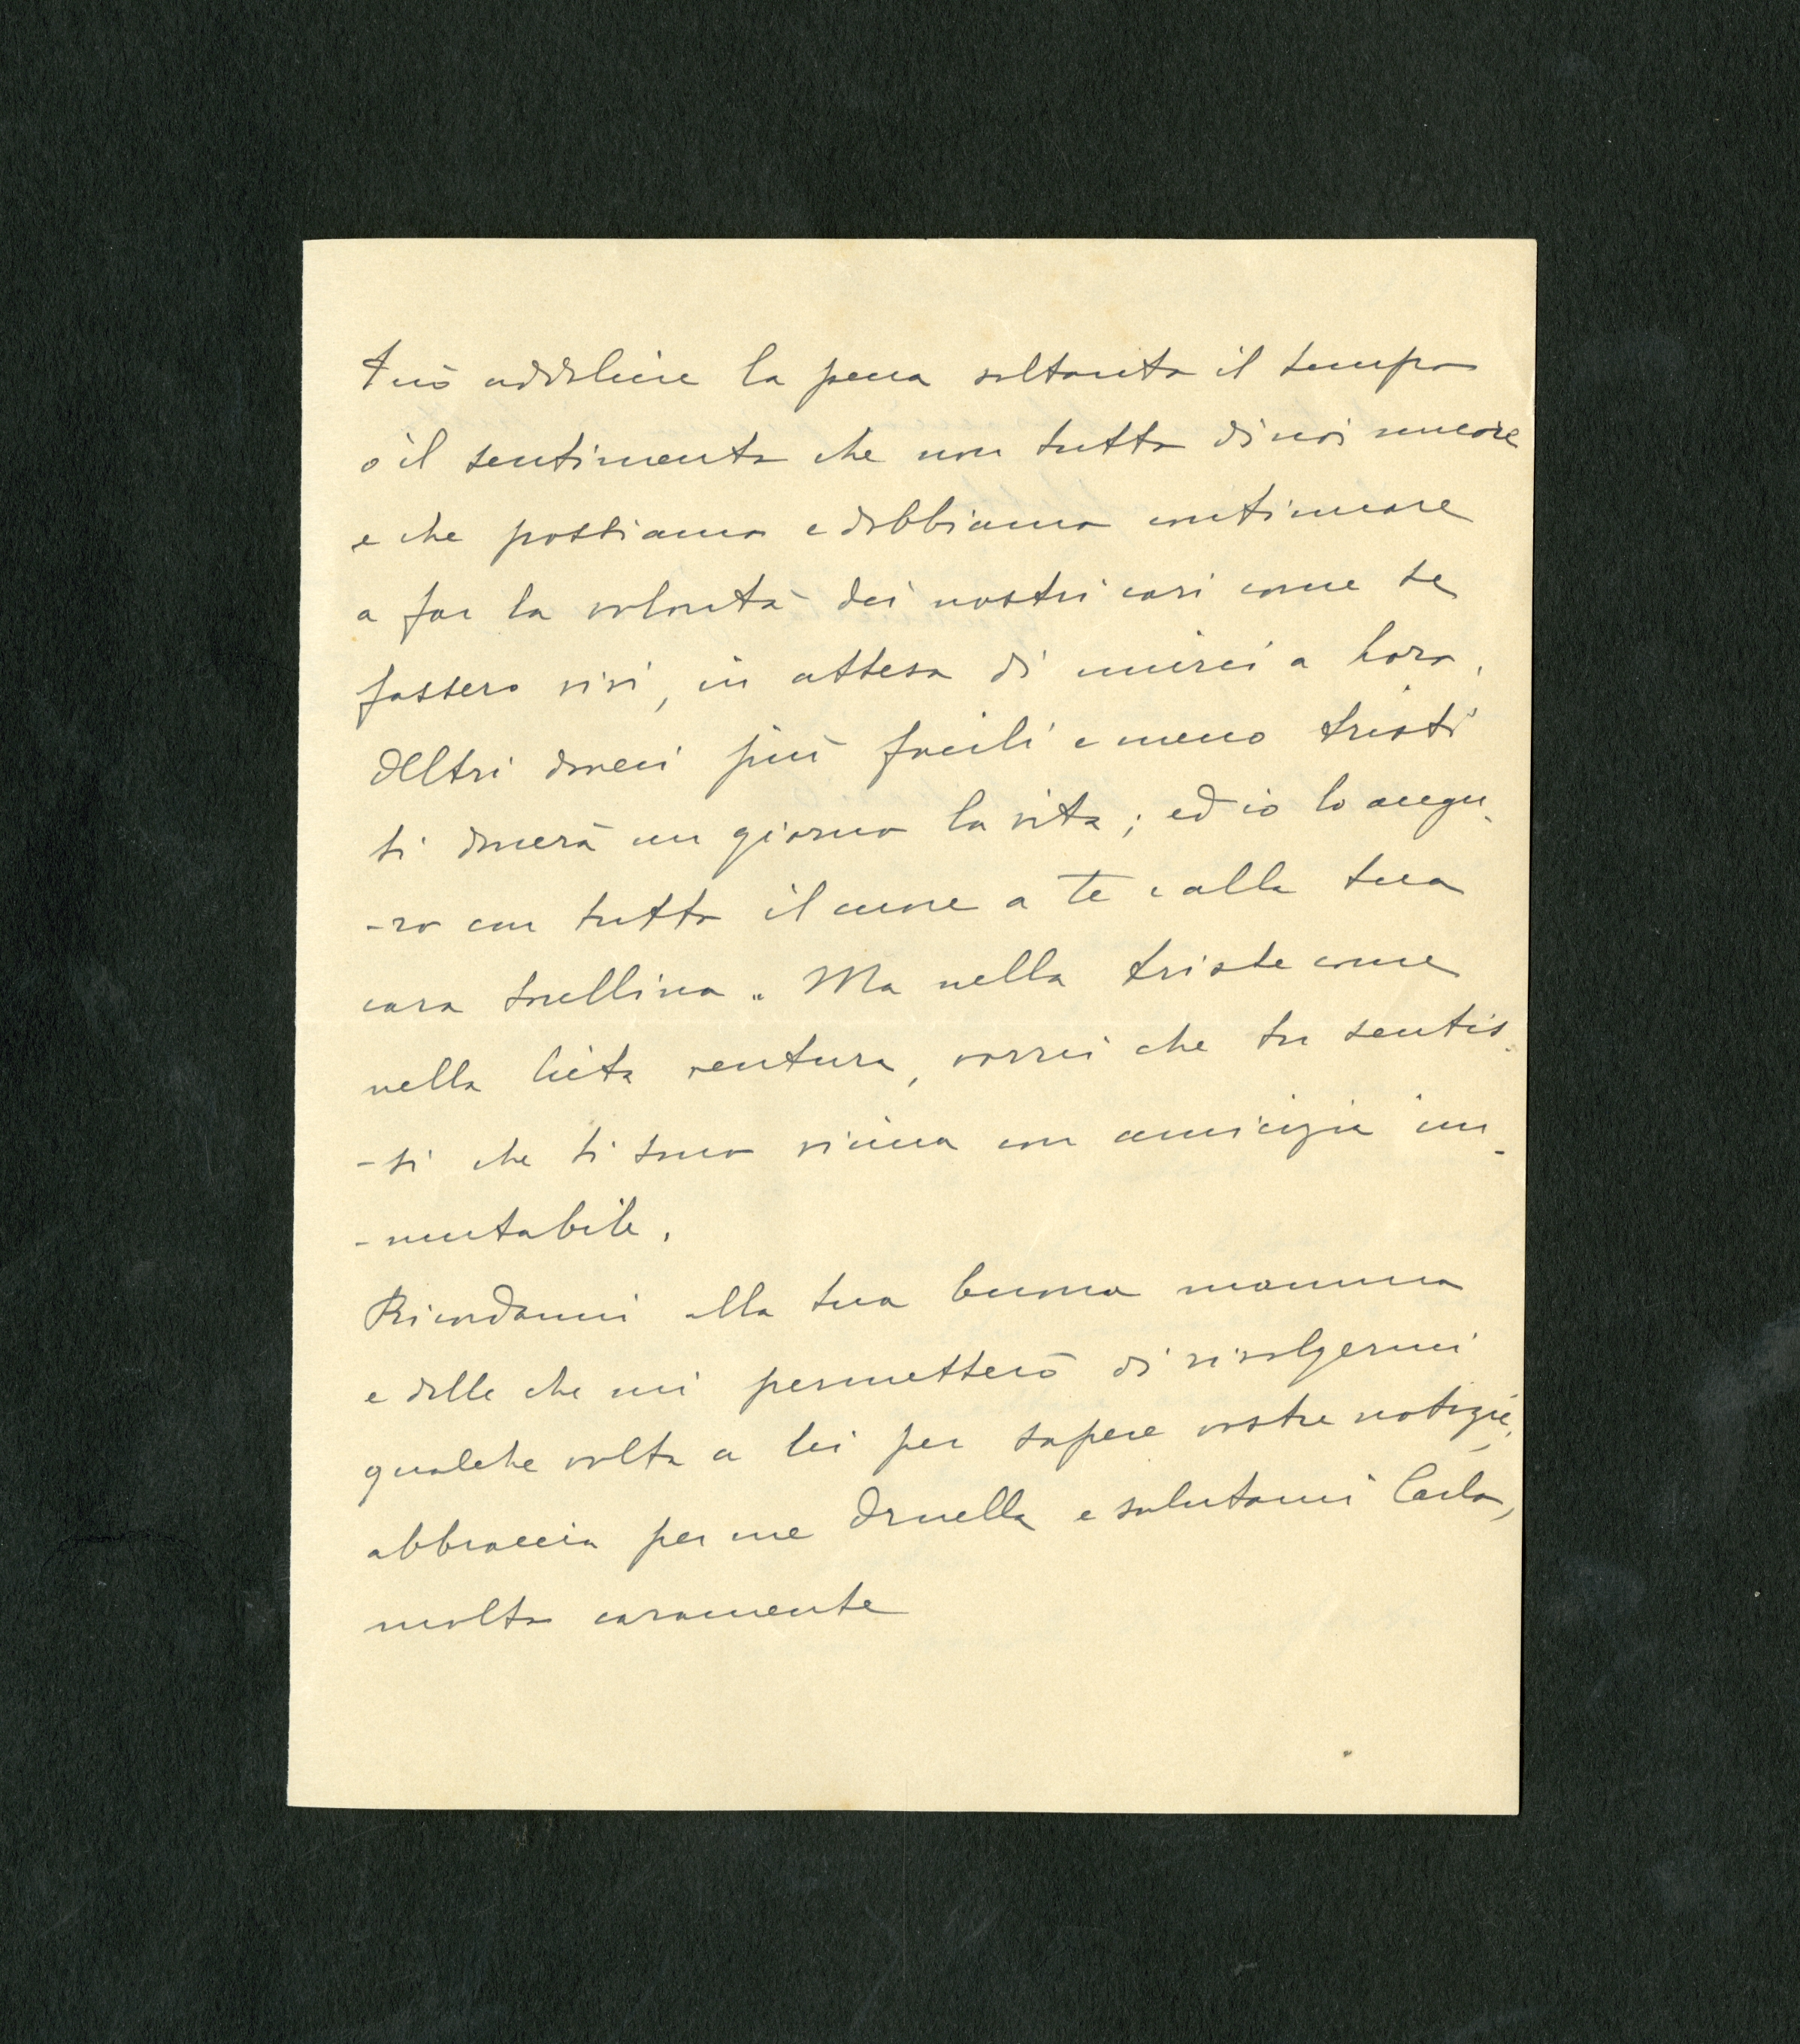 Può addolcire la pena soltanto il tempo
o il sentimento che non tutto di noi muore
e che possiamo e dobbiamo continuare
a far la volontà dei nostri cari come se
fossero vivi, in attesa di unirci a loro.
Altri doveri più facili e meno tristi
ti donerà un giorno la vita; ed io lo augu-
-ro con tutto il cuore a te e alla tua
cara sorellina. Ma nella triste come
nella lieta ventura, vorrei che tu sentis-
-si che ti sono vicina con amicizia im-
-mutabile.
Ricordami alla tua buona mamma
e dille che mi permetterò di rivolgermi
qualche volta a lei per sapere vostre notizie,
abbraccia per me Ornella e salutami Carlo,
molto caramente